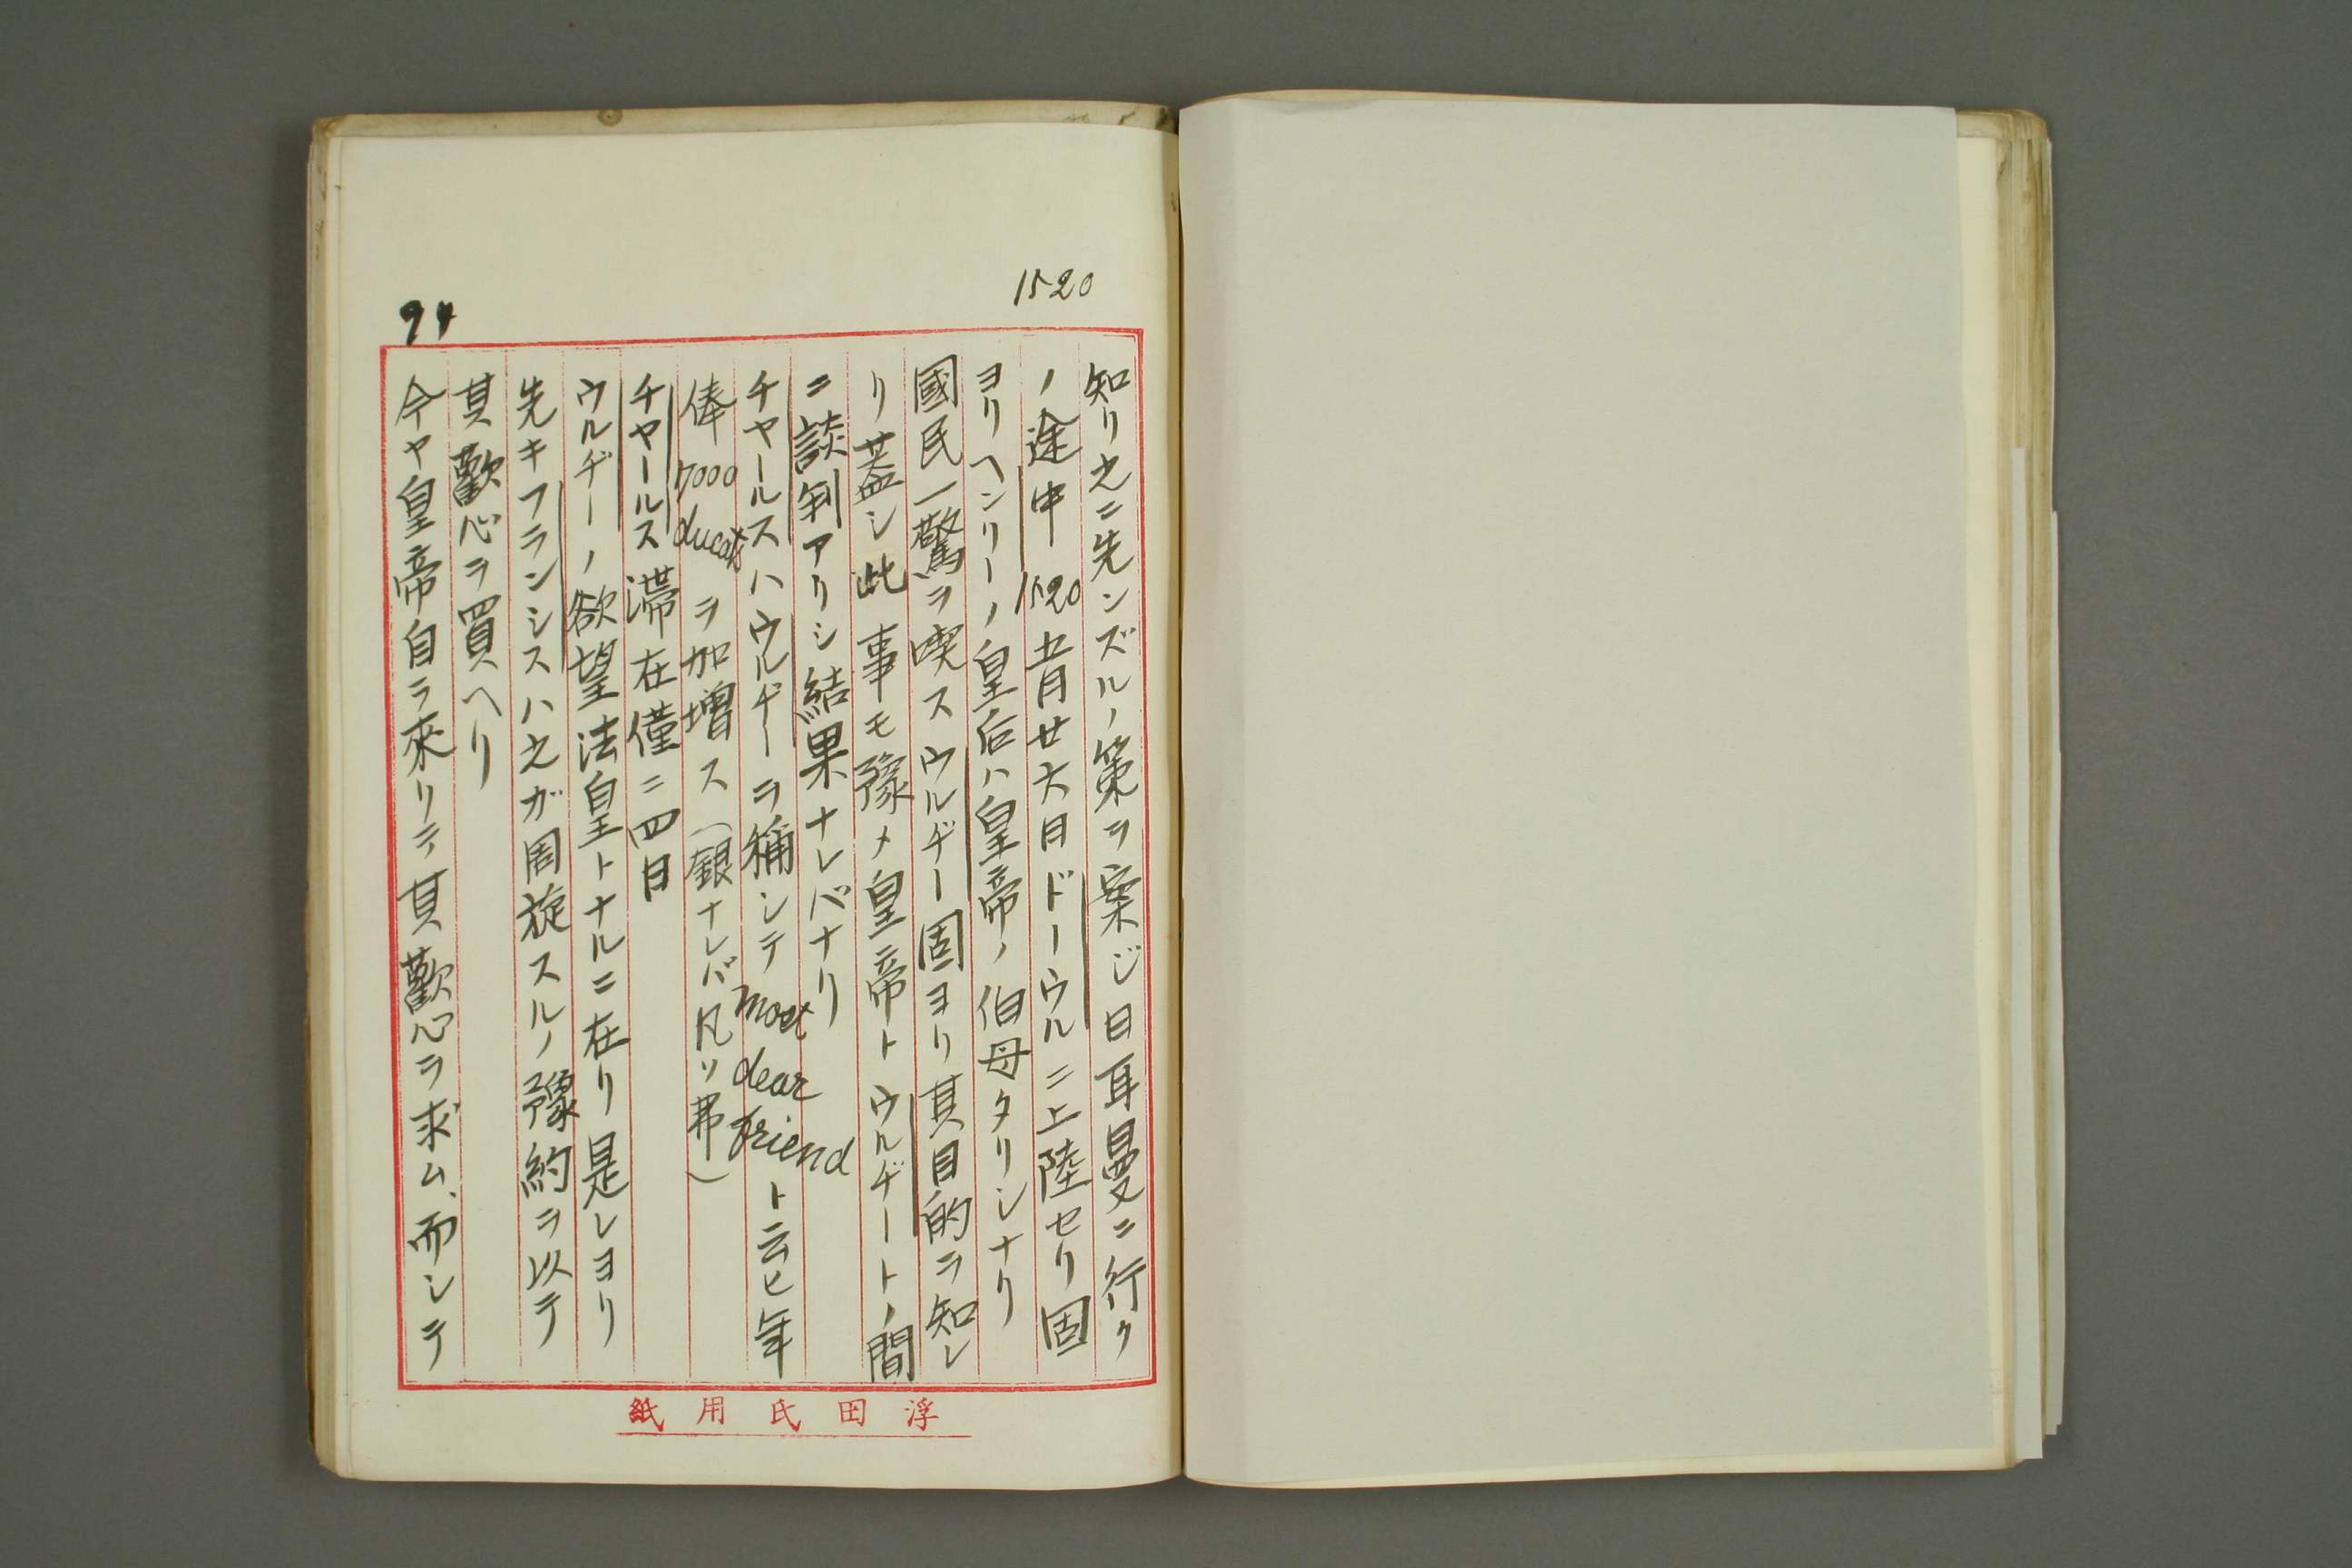 1520
知リ之ニ先ンズルノ策ヲ案ジ日耳曼ニ行ク
ノ途中1520五月廿六日ドーウルニ上陸セリ固
ヨリヘンリーノ皇后ハ皇帝ノ伯母タリシナリ
國民一驚ヲ喫スウルヂー固ヨリ其目的ヲ知レ
リ蓋シ此事モ豫メ皇帝トウルヂートノ間
ニ談判アリシ結果ナレバナリ
チャールスハウルヂーヲ稱シテ most dear friend ト云ヒ年
俸7000 ducatsヲ加増ス(銀ナレバ凡ソ弗)
チャールス滞在僅ニ四日
ウルヂーノ欲望法皇トナルニ在リ是レヨリ
先キフランシスハ之ガ周旋スルノ豫約ヲ以テ
其歡心ヲ買ヘリ
今ヤ皇帝自ラ來リテ其歡心ヲ求ム、而シテ
94
浮田氏用紙